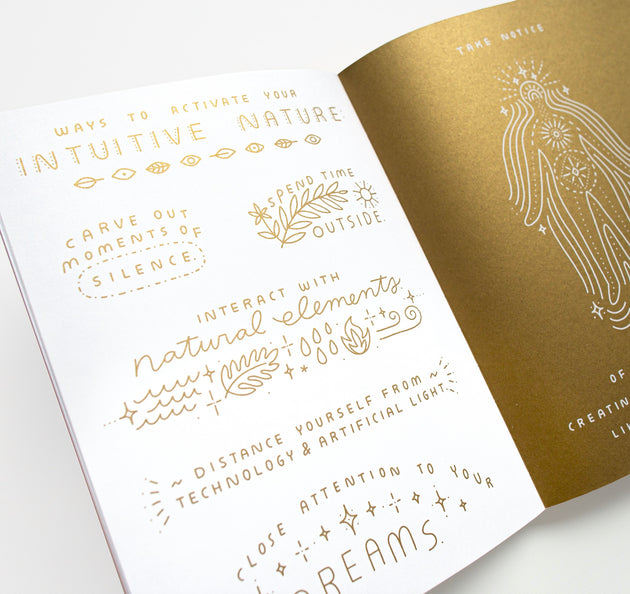 WAYS TO ACTIVATE YOUR
INTUITIVE NATURE
CARVE OUT
MOMENTS OF
SILENCE.
SPEND TIME
OUTSIDE.
INTERACT WITH
natural elements.
~ DISTANCE YOURSELF FROM ~
TECHNOLOGY & ARTIFICIAL LIGHT.
CLOSE ATTENTION TO YOUR
DREAMS.
TAKE NOTICE
OF
CREATIN
LI